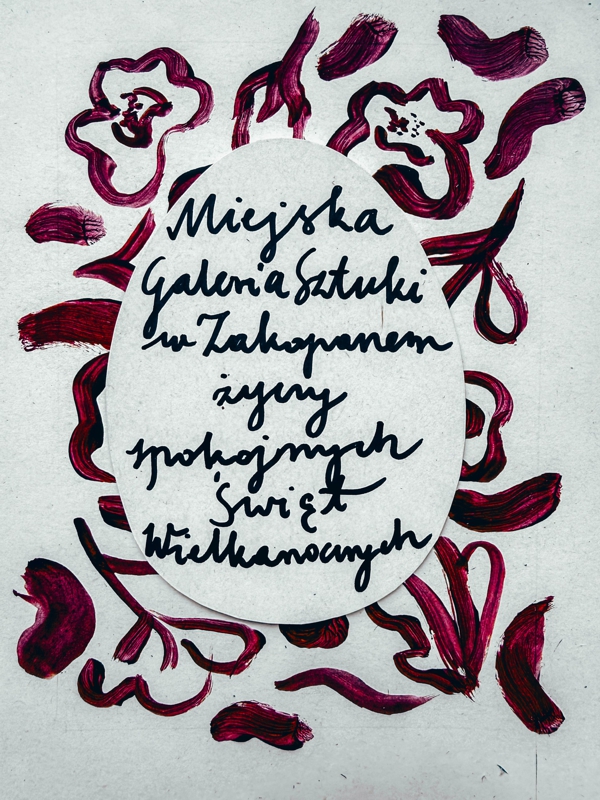 Miejska
Galeria Sztuki
w Zakopanem
życzy
spokojnych
Świąt
Wielkanocnych